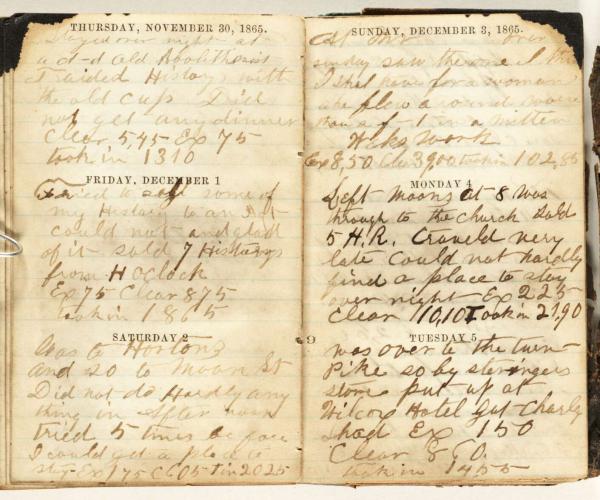 THURSDAY, NOVEMBER 30, 1865.
Stayed over night at
a d-d old Abolitionist
Traided History with
the old cup Did
not get any dinner
Clear 5,45 Ex 75
took in 1310
FRIDAY, DECEMBER 1
tried to sell some of
my History to an
could not and glad
of it sold 7 Historys
from H Oclock
Ex 75 Clear 875
took in 1865
SATURDAY 2
Was to Hortons
and so to Moon St
Did not do Hardly any
thing in After noon
tried 5 times be fore
I could get a place to
stay Ex 175 C 605 T in 2025
SUNDAY, DECEMBER 3, 1865.
At over
sunday saw the one I
I shal have for a woman
she flew around more
than a in a mitten
Weks Work
Ex 8,50 Cle 3900 took in 102,85
MONDAY 4
Left Moons at 8 Was
through to the church Sold
5 H.R. Craveld very
late Could not hardly
find a place to stay
over night Ex 225
Clear 10,10 Took in 21,90
9
TUESDAY 5
was over to the turn
Pike so by
store put up at
Wilcox Hotel Got Charly
shad Ex 150
Clear 860.
took in 1455